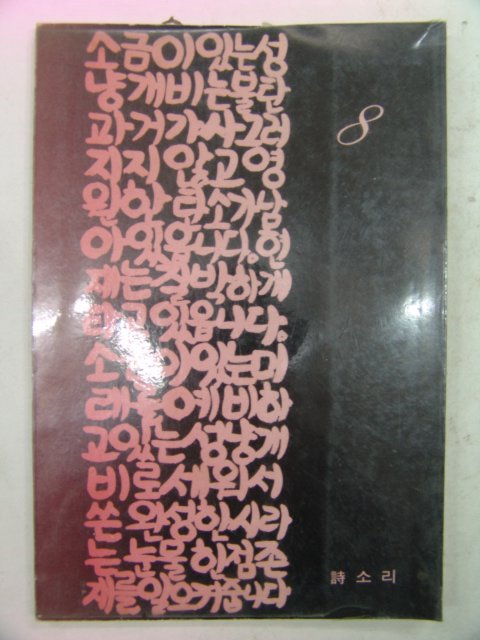 소금이있는성
냥개비는불탄
과거가사그러
지지않고영
원한탄소가남
아있읍니다.현
재는절박하게
타고있읍니다.
소금이있는미
래는예비하
고있는성냥개
비로세워서
쓴완성한시라
는눈물한점존
재를일으켜줍니다
8
詩소리